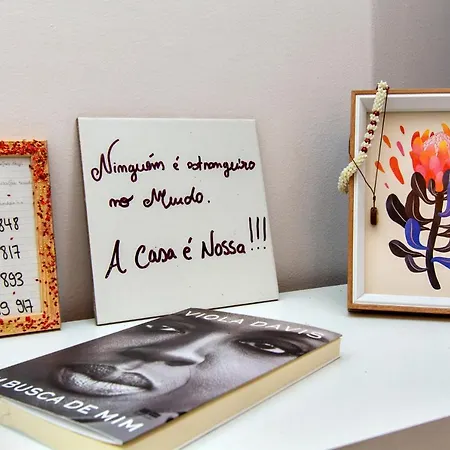 Ninguém é estrangeiro
no Mundo.
A Casa é Nossa!!!
848
817
893
9 917
VIOLA DAVIS
BUSCA DE MIM